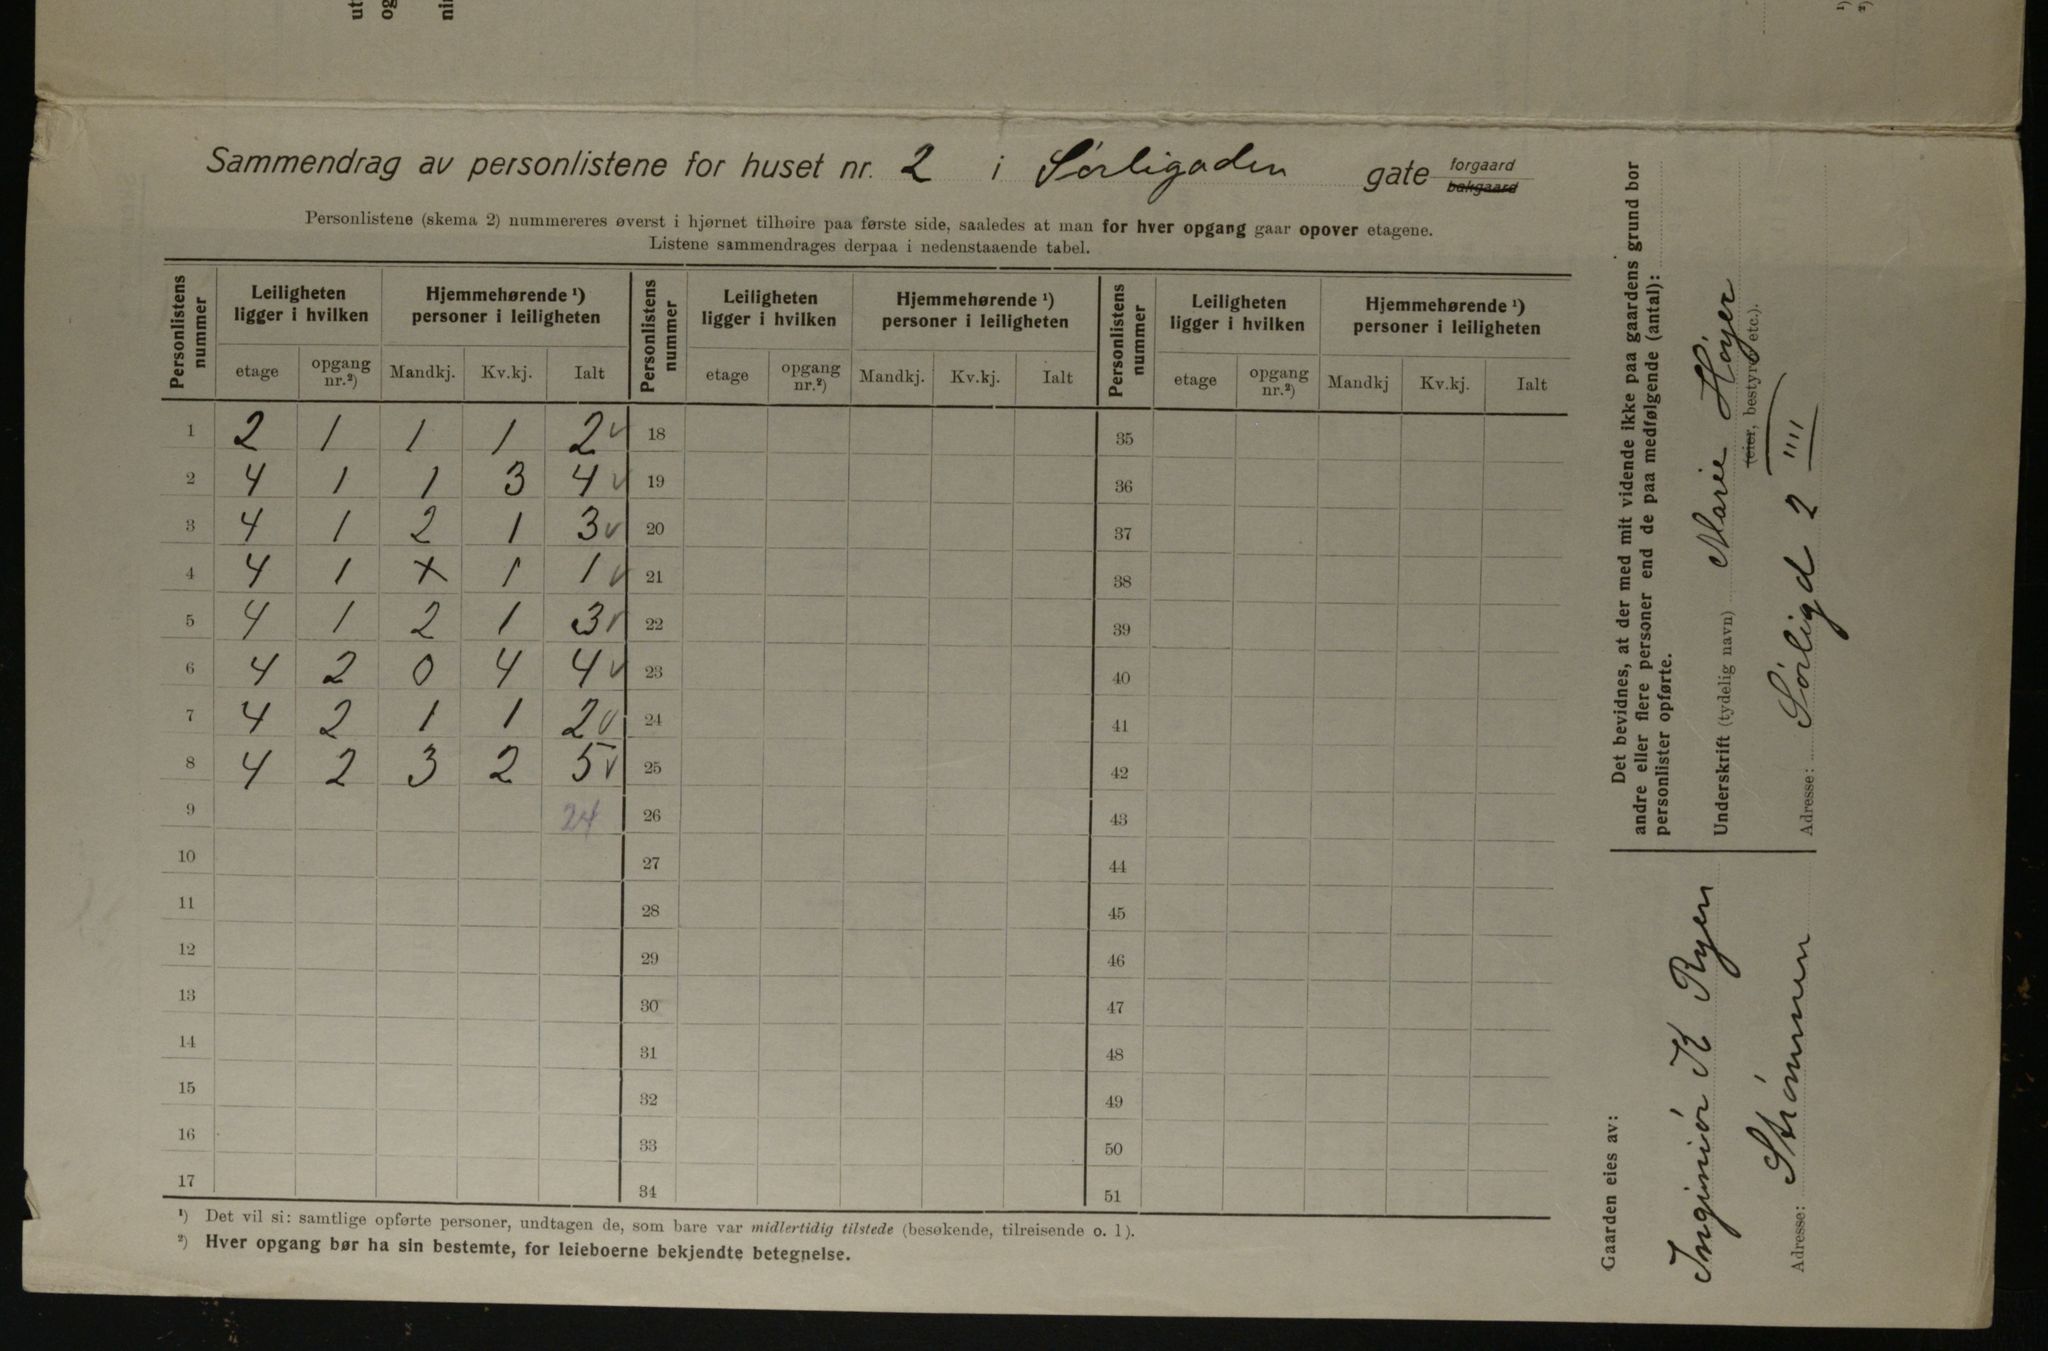 Sammendrag av personlistene for huset nr. 2 i Sørligaden gate forgaard bakgaard
Personlistene (skema 2) nummereres øverst i hjørnet tilhøire paa første side, saaledes at man for hver opgang gaar opover etagene.
Listene sammendrages derpaa i nedenstaaende tabel.
Personlistens nummer Leiligheten ligger i hvilken Hjemmehørende ¹) personer i leiligheten Personlistens nummer Leiligheten ligger i hvilken Hjemmehørende ¹) personer i leiligheten Personlistens nummer Leiligheten ligger i hvilken Hjemmehørende ¹) personer i leiligheten
etage opgang nr.²) Mandkj. Kv.kj. Ialt etage opgang nr.²) Mandkj. Kv.kj. Ialt etage opgang nr.²) Mandkj Kv.kj. Ialt
1 2 1 1 1 2 ✓ 18 35
2 4 1 1 3 4 ✓ 19 36
3 4 1 2 1 3 ✓ 20 37
4 4 1 x 1 1 ✓ 21 38
5 4 1 2 1 3 ✓ 22 39
6 4 2 0 4 4 ✓ 23 40
7 4 2 1 1 2 ✓ 24 41
8 4 2 3 2 5 ✓ 25 42
9 24 26 43
10 27 44
11 28 45
12 29 46
13 30 47
14 31 48
15 32 49
16 33 50
17 34 51
¹) Det vil si: samtlige opførte personer, undtagen de, som bare var midlertidig tilstede (besøkende, tilreisende o. l).
²) Hver opgang bør ha sin bestemte, for leieboerne bekjendte betegnelse.
Det bevidnes, at der med mit vidende ikke paa gaardens grund bor
andre eller flere personer end de paa medfølgende (antal):
personlister opførte.
Underskrift (tydelig navn) Marie Höyer
(eier, bestyrer etc.).
Adresse: Sørligd 2 ""
Gaarden eies av:
Ingeniör K Ryen
Adresse: Strömmen
ut
og
ni
¹)
²)